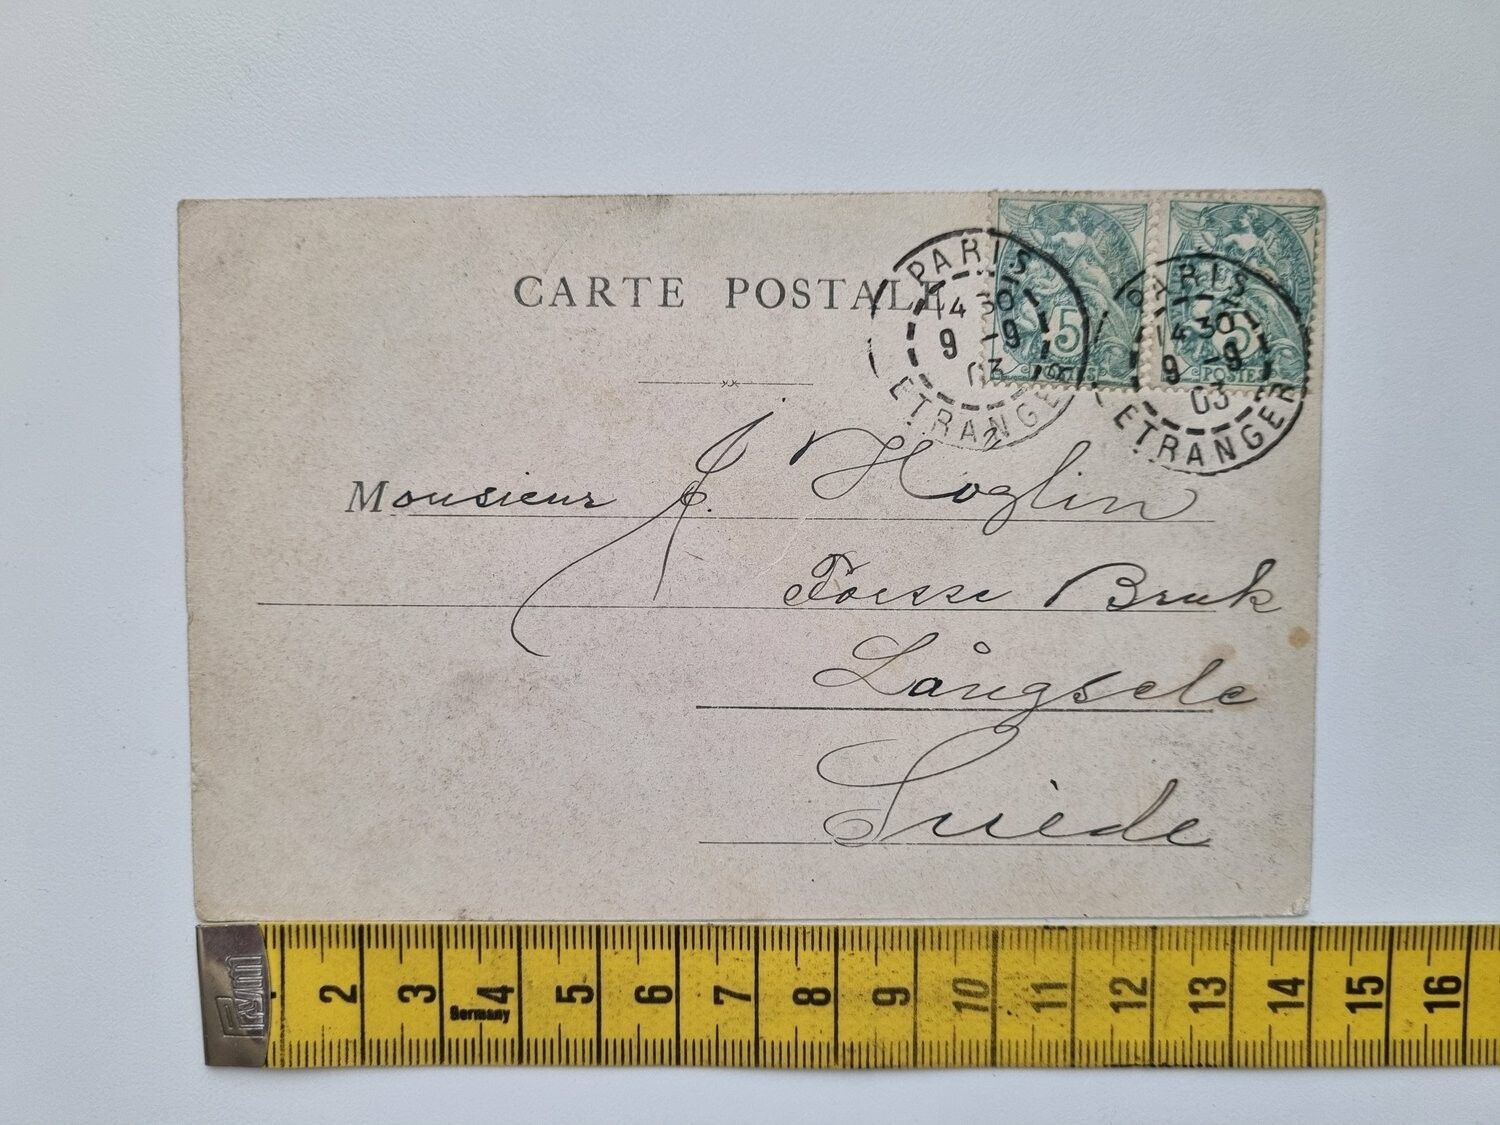 CARTE POSTALE
PARIS
14 30
9 -9
03
ETRANGER
5
POSTES
PARIS
14 30
9 -9
03
ETRANGER
5
POSTES
Monsieur J. Höglin
Forsse Bruk
Långsele
Suède
2 3 4 5 6 7 8 9 10 11 12 13 14 15 16
Germany